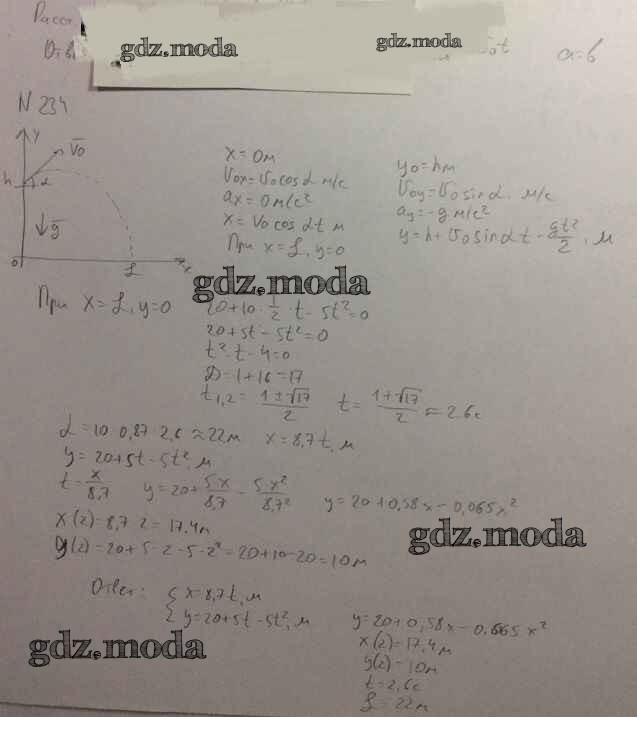 gdz.moda
gdz.moda
a=b
N 234
y
V̄o
h α
ḡ
0 L x
x = 0м
υox=υo cos α м/с
ax = 0 м/с²
x = Vo cos αt м
При x = L, y=0
yo=hм
υoy=υo sin α, м/с
ay=-g м/с²
y=h+υo sin αt - gt²/2, м
gdz.moda
При x = L, y=0
20+10·1/2·t-5t²=0
20+5t-5t²=0
t²-t-4=0
D=1+16=17
t1,2 = (1±√17)/2 t = (1+√17)/2 ≈ 2.6с
L=10·0,87·2,6≈22м x=8,7t, м
y=20+5t-5t², м
t=x/8,7 y=20+5x/8,7-5x²/8,7² y=20+0,58x-0,065x²
x(2)=8,7·2=17,4м
y(2)=20+5·2-5·2²=20+10-20=10м
gdz.moda
Ответ: { x=8,7t, м
y=20+5t-5t², м
y=20+0,58x-0,665x²
x(2)=17,4м
y(2)=10м
t=2,6с
L=22м
gdz.moda